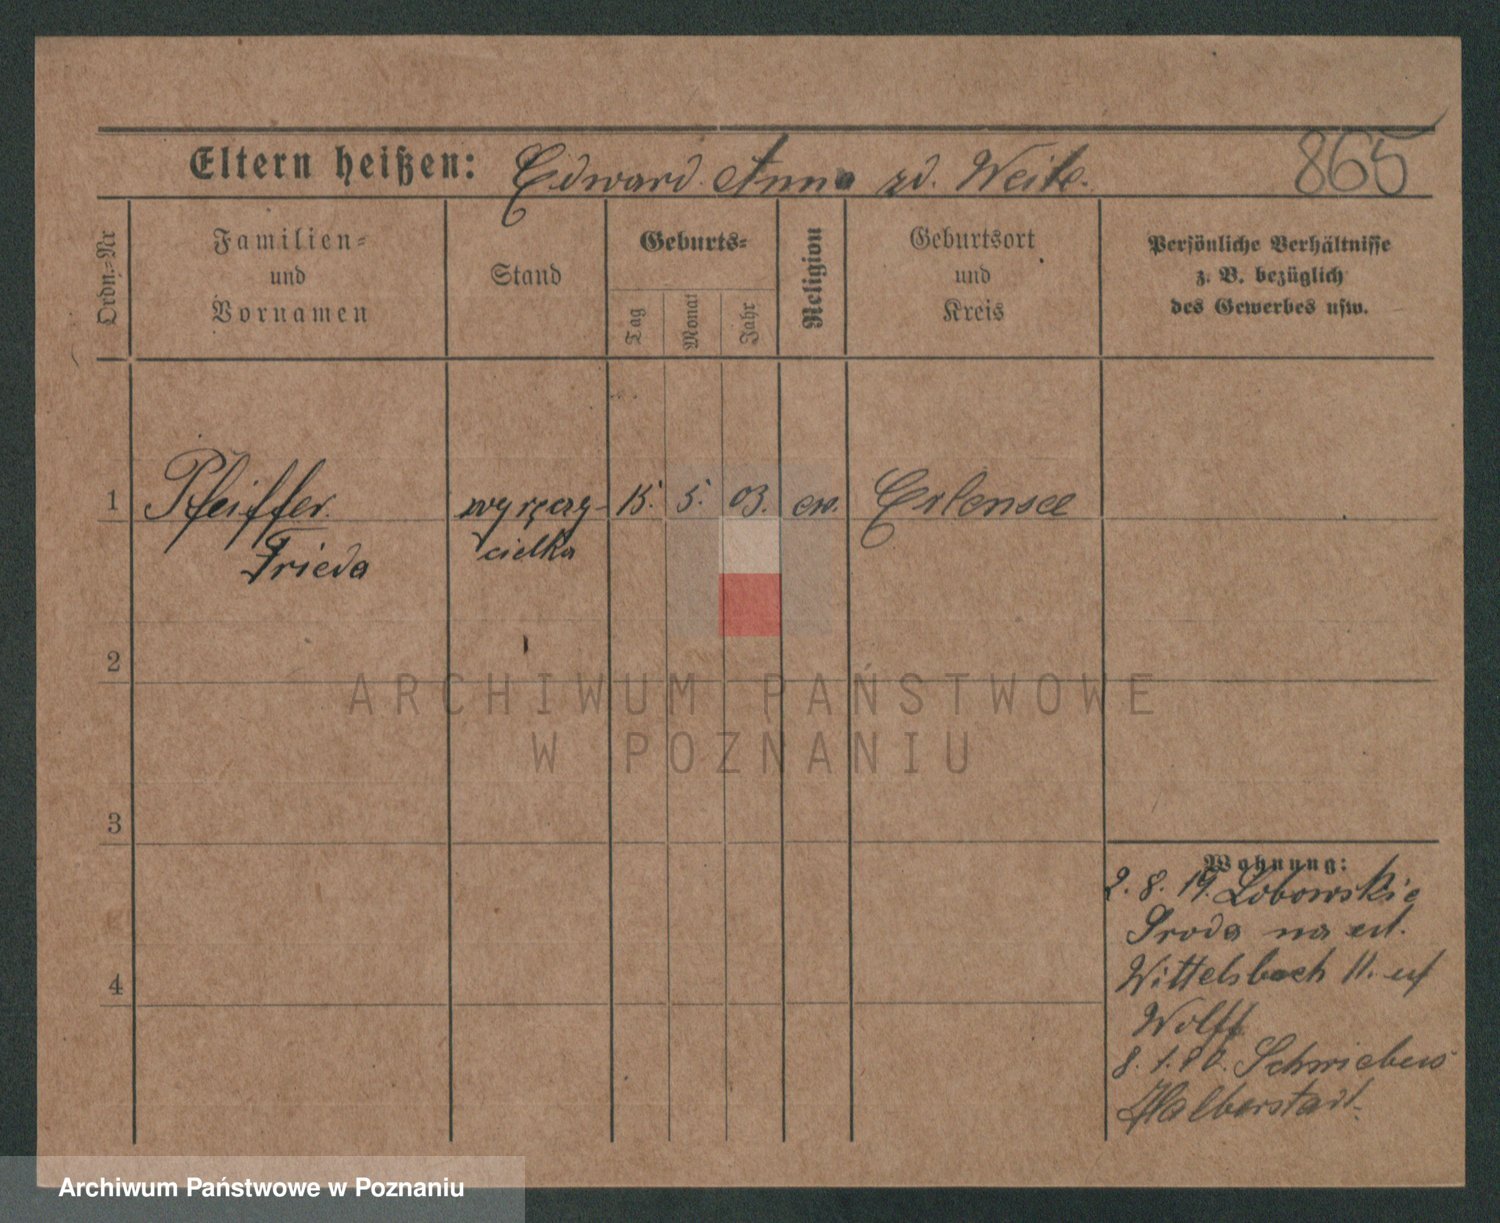 Eltern heißen: Edward Anna zd. 865
Ordn.-Nr
Familien-
und
Vornamen
Stand
Geburts-
Tag
Monat
Jahr
Religion
Geburtsort
und
Kreis
Persönliche Verhältnisse
z. B. bezüglich
des Gewerbes usw.
1 Pfeiffer 15. 5. 03. ew. Erlensee
Frieda cielka
2
ARCHIWUM PAŃSTWOWE
W POZNANIU
3
Wohnung:
2. 8. 19.
Sroda na
Wittelsbach 11.
Wolff
8. 1.
Halberstadt.
4
Archiwum Państwowe w Poznaniu